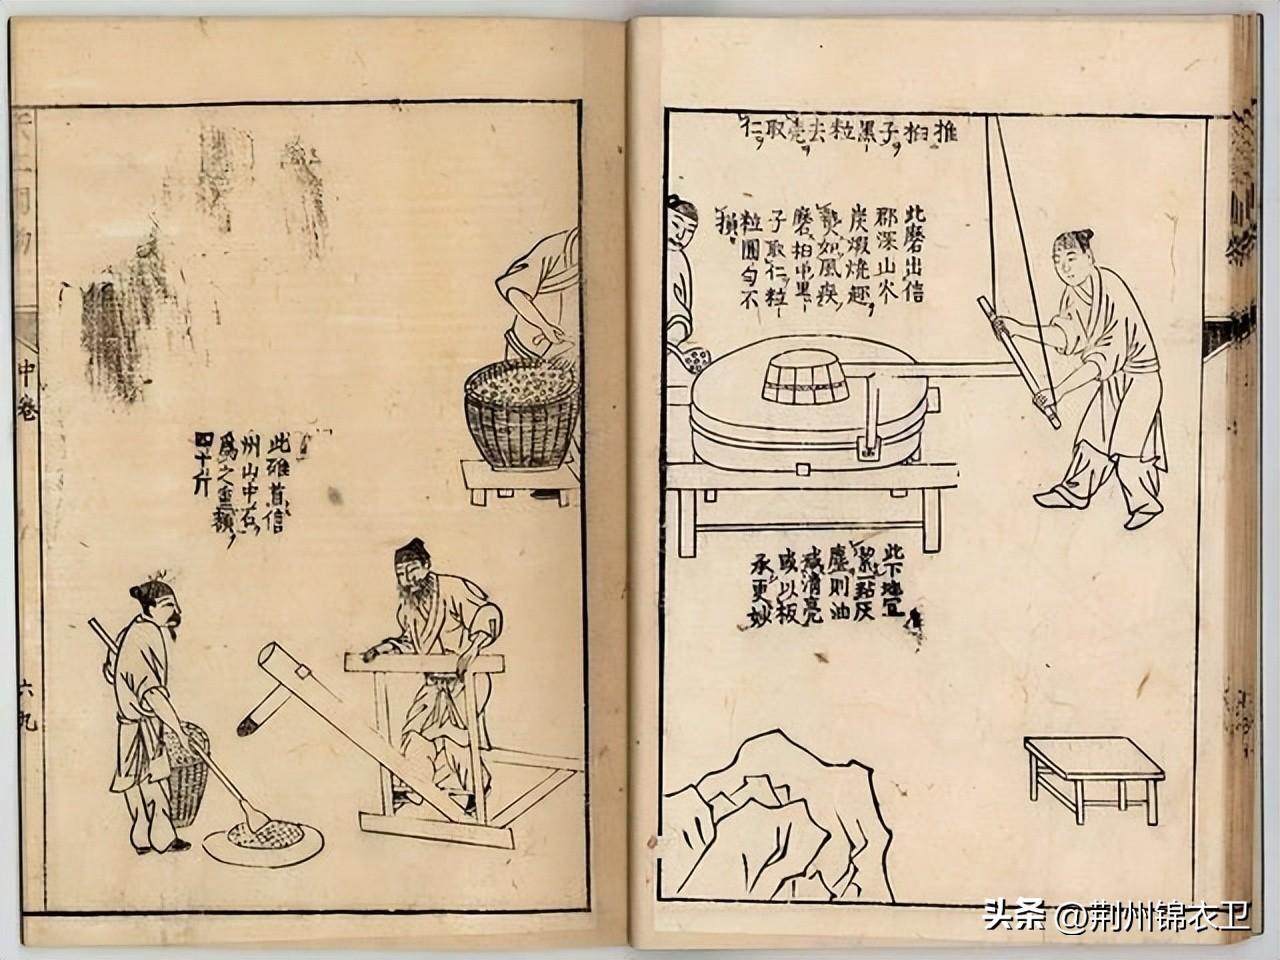 推桕子黑粒去壳取仁
此磨出信
郡深山火
炭煆燒趣
熱如風疾
磨桕中黑
子取仁粒
粒圓勻不
損
此下地宜
絜一點灰
塵則油
減清亮
或以板
承更妙
此碓首信
州山中石
爲之重
四十斤
中卷
六九
头条 @荆州锦衣卫